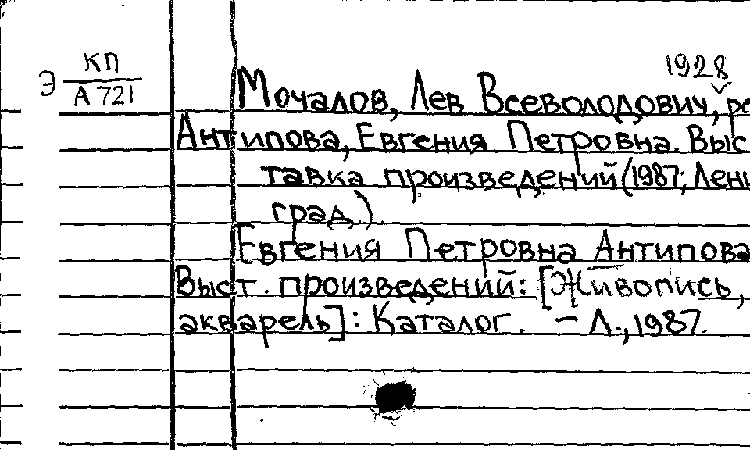 КП
Э А 721
1928
Мочалов, Лев Всеволодович, ре
Антипова, Евгения Петровна. Выс
тавка произведений (1987; Лени
град.).
Евгения Петровна Антипова
Выст. произведений: [Живопись,
акварель]: Каталог. – Л., 1987.